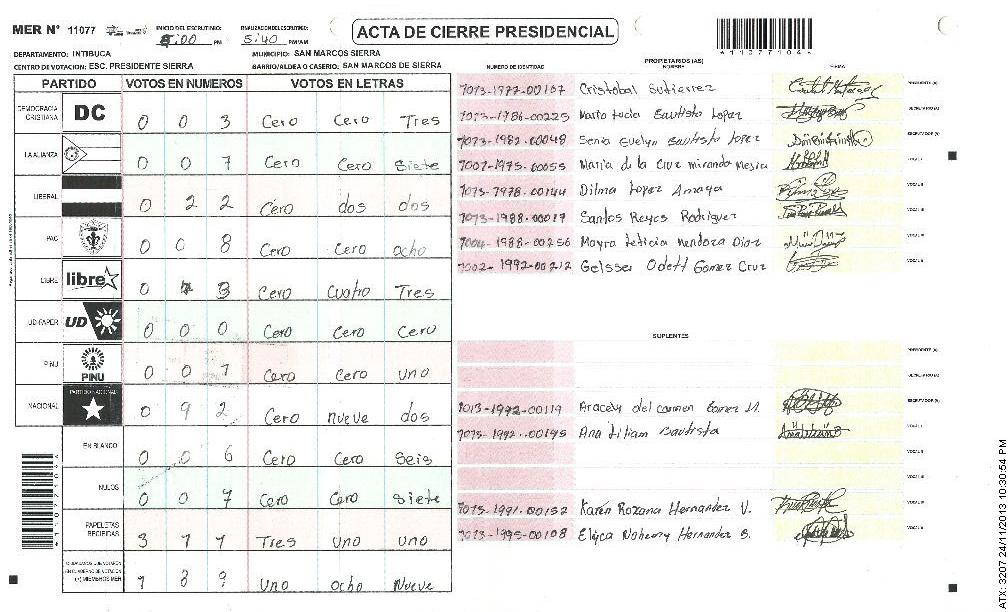 MER Nº 11077
INICIO DEL ESCRUTINIO: FINALIZACION ESCRUTINIO:
5:00 PM 5:40 PM/AM
ACTA DE CIERRE PRESIDENCIAL
*110771044*
DEPARTAMENTO: INTIBUCA MUNICIPIO: SAN MARCOS SIERRA
CENTRO DE VOTACION: ESC. PRESIDENTE SIERRA BARRIO/ALDEA O CASERIO: SAN MARCOS DE SIERRA
PARTIDO VOTOS EN NUMEROS VOTOS EN LETRAS
DEMOCRACIA CRISTIANA DC 0 0 3 Cero Cero Tres
LA ALIANZA 0 0 7 Cero Cero Siete
LIBERAL 0 2 2 Cero dos dos
PAC 0 0 8 Cero Cero ocho
LIBRE libre 0 4 3 Cero Cuatro Tres
UD-FAPER UD 0 0 0 Cero Cero Cero
PINU PINU 0 0 1 Cero Cero uno
NACIONAL PARTIDO NACIONAL 0 9 2 Cero nueve dos
EN BLANCO 0 0 6 Cero Cero Seis
NULOS 0 0 7 Cero Cero Siete
PAPELETAS RECIBIDAS 3 1 1 Tres uno uno
CIUDADANOS QUE VOTARON EN CUADERNO DE VOTACION (+) MIEMBROS MER 1 8 9 Uno ocho Nueve
PROPIETARIOS (AS)
NUMERO DE IDENTIDAD NOMBRE FIRMA
1013-1977-00167 Cristobal Gutierrez PRESIDENTE (A)
1013-1986-00225 Maria Lucia Bautista Lopez SECRETARIO (A)
1013-1982-00048 Sonia Suelyn Bautista Lopez ESCRUTADOR (A)
1007-1975-00055 Maria de la Cruz miranda Mejia VOCAL I
1013-1978-00144 Dilma Lopez Amaya VOCAL II
1013-1988-00017 Santos Reyes Rodriguez VOCAL III
1004-1988-00256 Mayra Leticia Mendoza Diaz VOCAL IV
1002-1992-00212 Geisser Odett Gomez Cruz VOCAL V
SUPLENTES
PRESIDENTE (A)
SECRETARIO (A)
1013-1992-00119 Aracely del carmen Gomez M. ESCRUTADOR (A)
1013-1992-00195 Ana Liliam Bautista VOCAL I
VOCAL II
VOCAL III
1013-1991-00152 Karen Rozana Hernandez V. VOCAL IV
1013-1995-00108 Hernandez B. VOCAL V
ATX: 3207 24/11/2013 10:30:54 PM